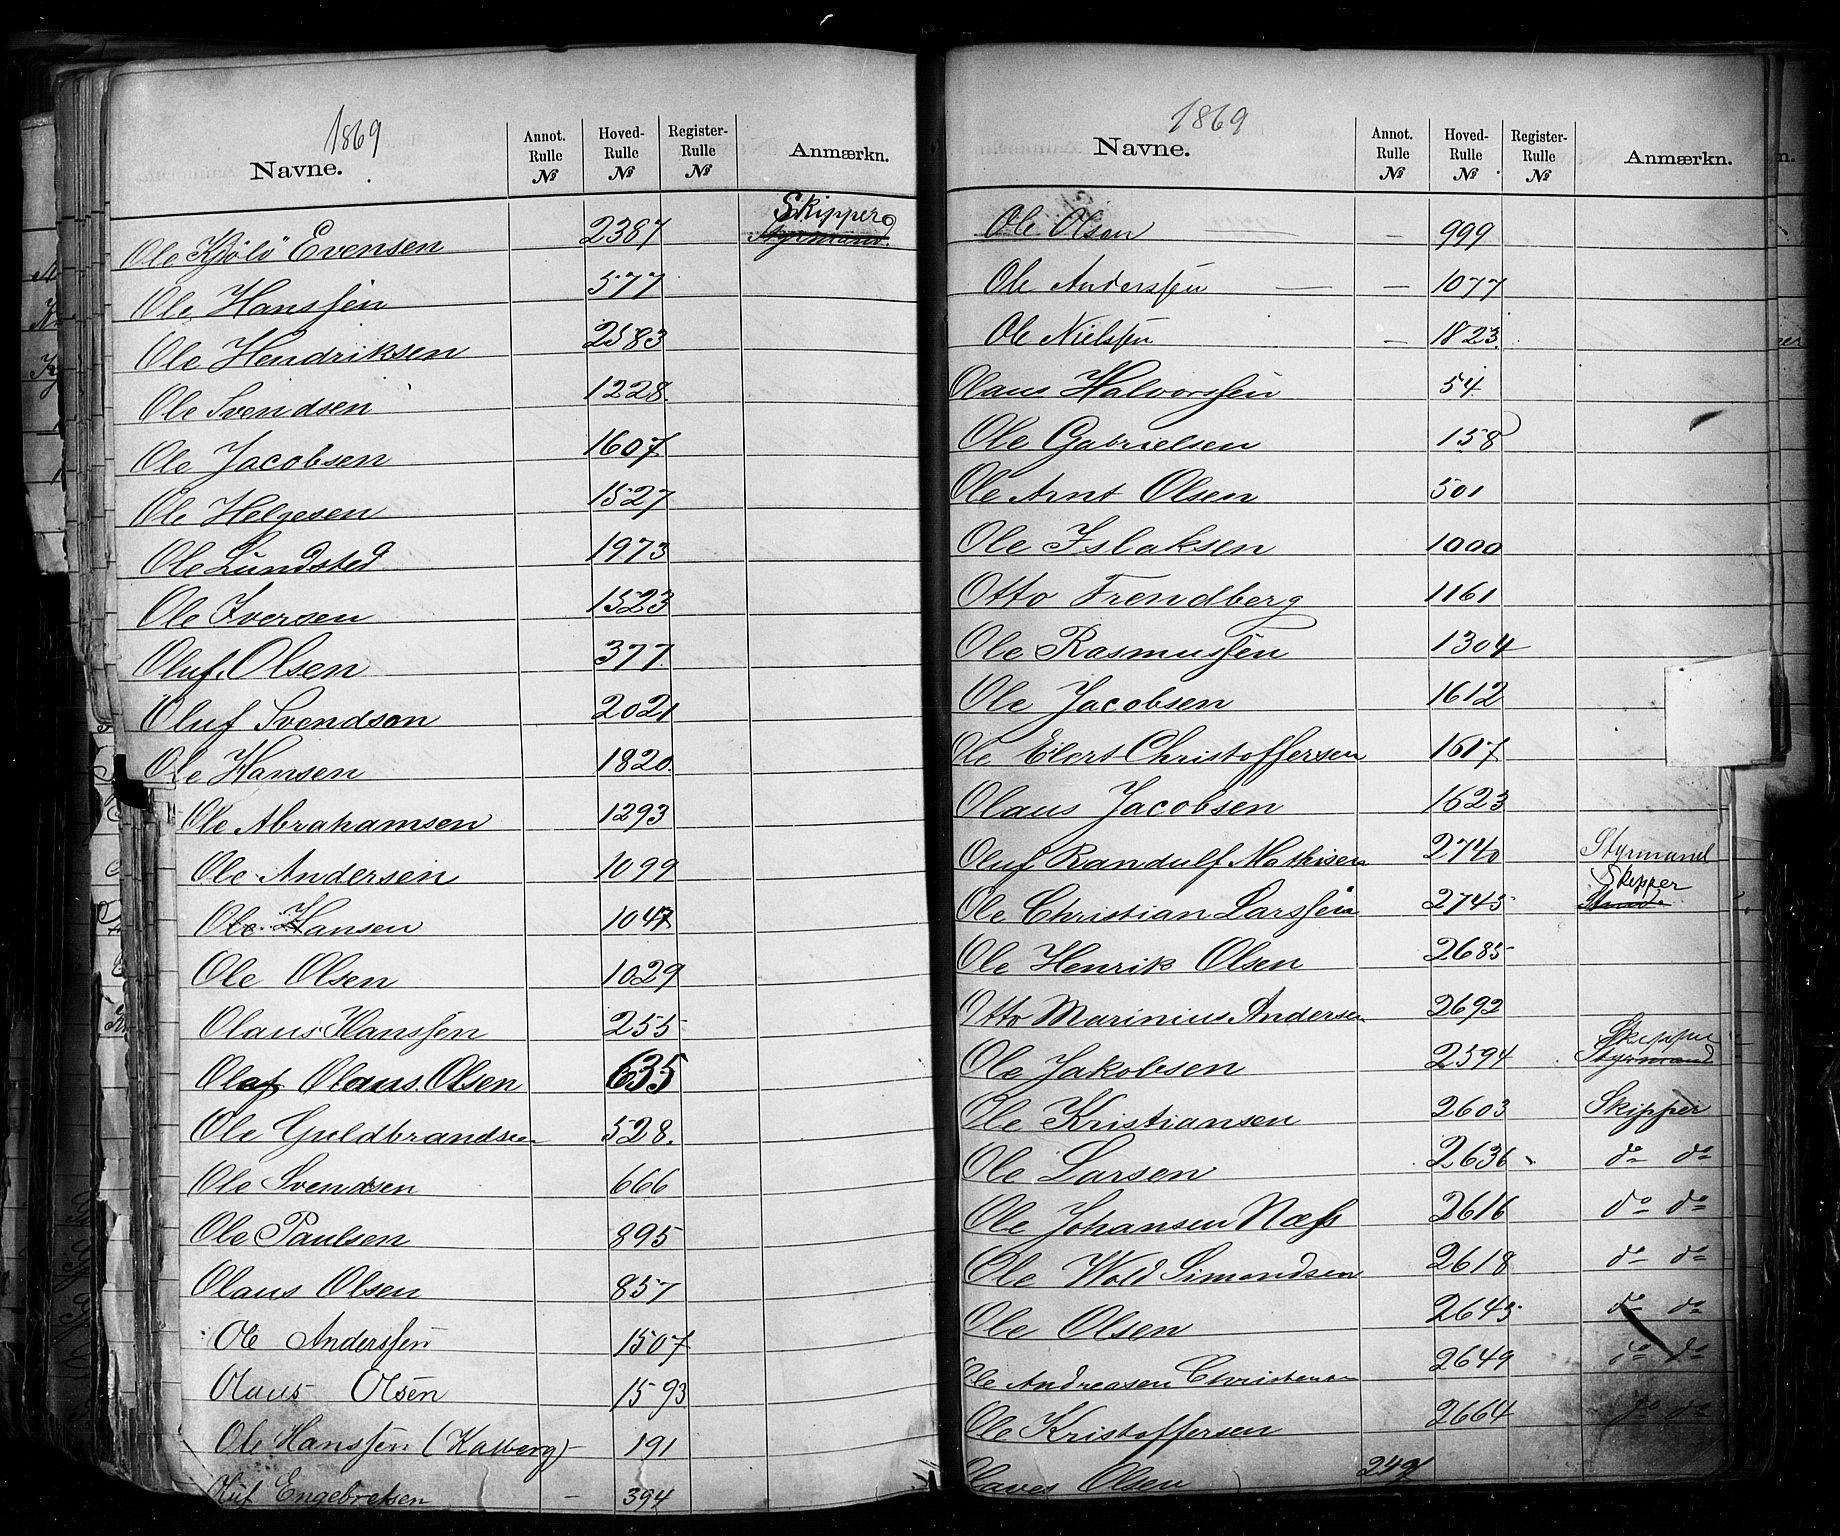 1869
Navne. Annot. Rulle № Hoved- Rulle № Register- Rulle № Anmærkn.
Ole Kjölö Evensen 2387 Skipper Styrmand.
Ole Hanssen 577
Ole Hendriksen 2583
Ole Svendsen 1228.
Ole Jacobsen 1607
Ole Helgesen 1527
Ole Lundsted 1973
Ole Iversen 1523
Oluf. Olsen 377.
Oluf Svendsen 2021
Ole Hansen 1820.
Ole Abrahamsen 1293
Ole Andersen 1099
Ole Hansen 1047
Ole Olsen 1029
Olaus Hanssen 255
Olaf Olaus. Olsen 635
Ole Guldbrandsen 528.
Ole Svendsen 666
Ole Paulsen 895
Olaus Olsen 857
Ole Anderssen 1507
Olaus Olsen 1593
Ole Hanssen (Kalberg) 191
Oluf Engebretsen – 394
1869
Navne. Annot. Rulle № Hoved- Rulle № Register- Rulle № Anmærkn.
Ole Olsen – 999
Ole Anderssen — – 1077
Ole Nielssen – 1823.
Olaus Halvorssen 54.
Ole Gabrielsen 158
Ole Arnt Olsen 501
Ole Islaksen 1000
Otto Frendberg 1161
Ole Rasmussen 1304
Ole Jacobsen 1612
Ole Elert Christoffersen 1617
Olaus Jacobsen 1623
Oluf Randulf Mathisen 2740 Styrmand
Ole Christian Larssen 2745 Skipper
Ole Henrik Olsen 2685
Otto Marinius Andersen 2692
Ole Jakobsen 2594 Skipper Styrmand
Ole Kristiansen 2603 Skipper
Ole Larsen 2636 do do
Ole Johansen Næss 2616 do do
Ole Wold Simondsen 2618 do do
Ole Olsen 2645 do do
Ole Andreasen Christensen 2649 do do
Ole Kristoffersen 2664 do do
Olaves Olsen